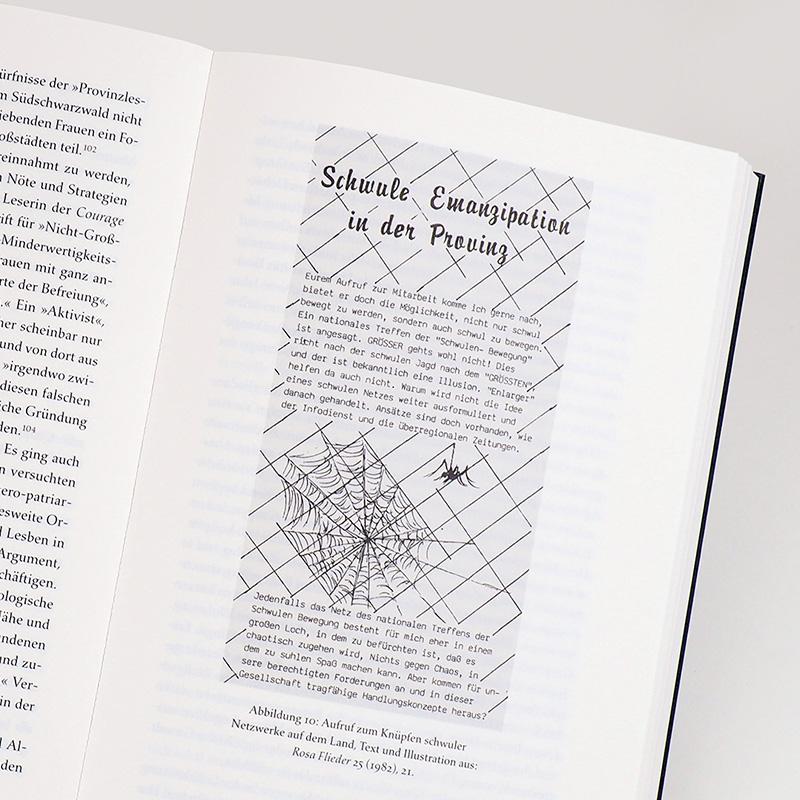 ürfnisse der »Provinzles-
m Südschwarzwald nicht
iebenden Frauen ein Fo-
oßstädten teil.¹⁰²
reinnahmt zu werden,
n Nöte und Strategien
Leserin der Courage
rift für »Nicht-Groß-
-Minderwertigkeits-
rauen mit ganz an-
rte der Befreiung«,
.« Ein »Aktivist«,
ner scheinbar nur
und von dort aus
»irgendwo zwi-
diesen falschen
liche Gründung
den.¹⁰⁴
Es ging auch
n versuchten
ero-patriar-
esweite Or-
d Lesben in
Argument,
chäftigen.
ologische
lähe und
undenen
und zu-
« Ver-
in der
d Al-
den
Schwule Emanzipation
in der Provinz
Eurem Aufruf zur Mitarbeit komme ich gerne nach,
bietet er doch die Möglichkeit, nicht nur schwul
bewegt zu werden, sondern auch schwul zu bewegen.
Ein nationales Treffen der "Schwulen- Bewegung"
ist angesagt. GRÖSSER gehts wohl nicht! Dies
richt nach der schwulen Jagd nach dem "GRÖSSTEN",
und der ist bekanntlich eine Illusion. "Enlarger"
helfen da auch nicht. Warum wird nicht die Idee
eines schwulen Netzes weiter ausformuliert und
danach gehandelt. Ansätze sind doch vorhanden, wie
der Infodienst und die überregionalen Zeitungen.
Jedenfalls das Netz des nationalen Treffens der
Schwulen Bewegung besteht für mich eher in einem
großen Loch, in dem zu befürchten ist, daß es
chaotisch zugehen wird, Nichts gegen Chaos, in
dem zu suhlen Spaß machen kann. Aber kommen für un-
sere berechtigten Forderungen an und in dieser
Gesellschaft tragfähige Handlungskonzepte heraus?
Abbildung 10: Aufruf zum Knüpfen schwuler
Netzwerke auf dem Land, Text und Illustration aus:
Rosa Flieder 25 (1982), 21.